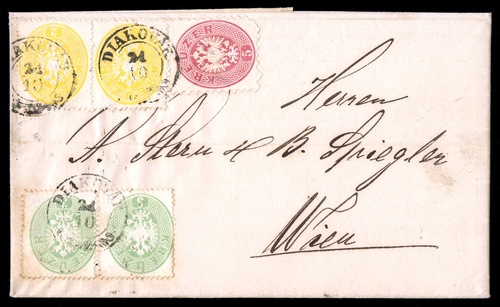 DIAKOVAR
24
10
DIAKOVAR
24
10
KREUZER
5
Herren
A. Stern & B. Spiegler
Wien
DIAKOVAR
24
10
3
3